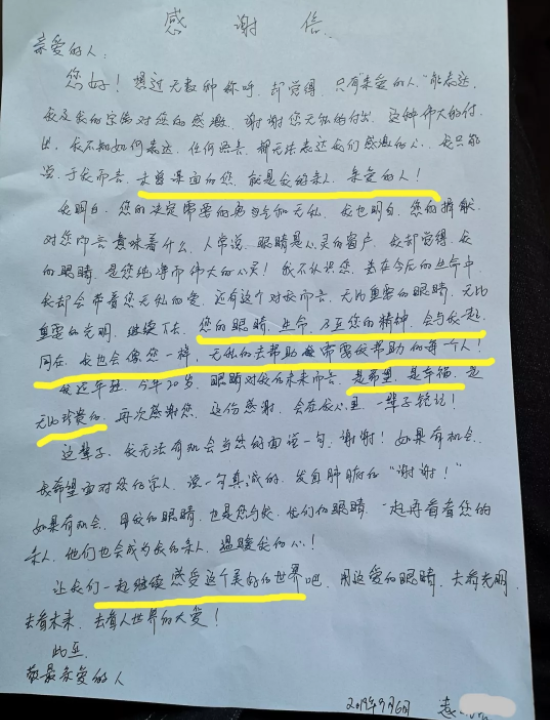 感谢信
亲爱的人:
您好!想过无数种称呼,却觉得,只有"亲爱的人"能表达,
我及我的家人对您的感激,谢谢您无私的付出,这种伟大的付
出,我不知如何表达,任何语言,都无法表达我们感激的心,我只能
说,于我而言,未曾谋面的您,就是我的亲人,亲爱的人!
我明白,您的决定需要的勇气和无私,我也明白,您的捐献,
对您而言意味着什么,人常说,眼睛是心灵的窗户,我却觉得,我
的眼睛,是您纯净而伟大的心灵!我不认识您,在今后的生命中,
我却会带着您无私的爱,还有这个对我而言,无比重要的眼睛,无比
重要的光明,继续下去,您的眼睛,生命,乃至您的精神,会与我一起
同在,我也会像您一样,无私的去帮助需要我帮助的每一个人!
我还年轻,今年20岁,眼睛对我的未来而言,是希望,是幸福,是
无比珍贵的,再次感谢您,这份感谢,会在我心里一辈子铭记!
这辈子,我无法有机会当您的面说一句,谢谢!如果有机会,
我希望面对您的家人,说一句真诚的,发自肺腑的"谢谢!"
如果有机会,用我的眼睛,也是您与我,我们的眼睛,一起再看看您的
亲人,他们也会成为我的亲人,温暖我的心!
让我们一起继续感受这个美好的世界吧,用这爱的眼睛,去看光明,
去看未来,去看人世界的大爱!
此至
敬最亲爱的人
2019年9月6日 袁